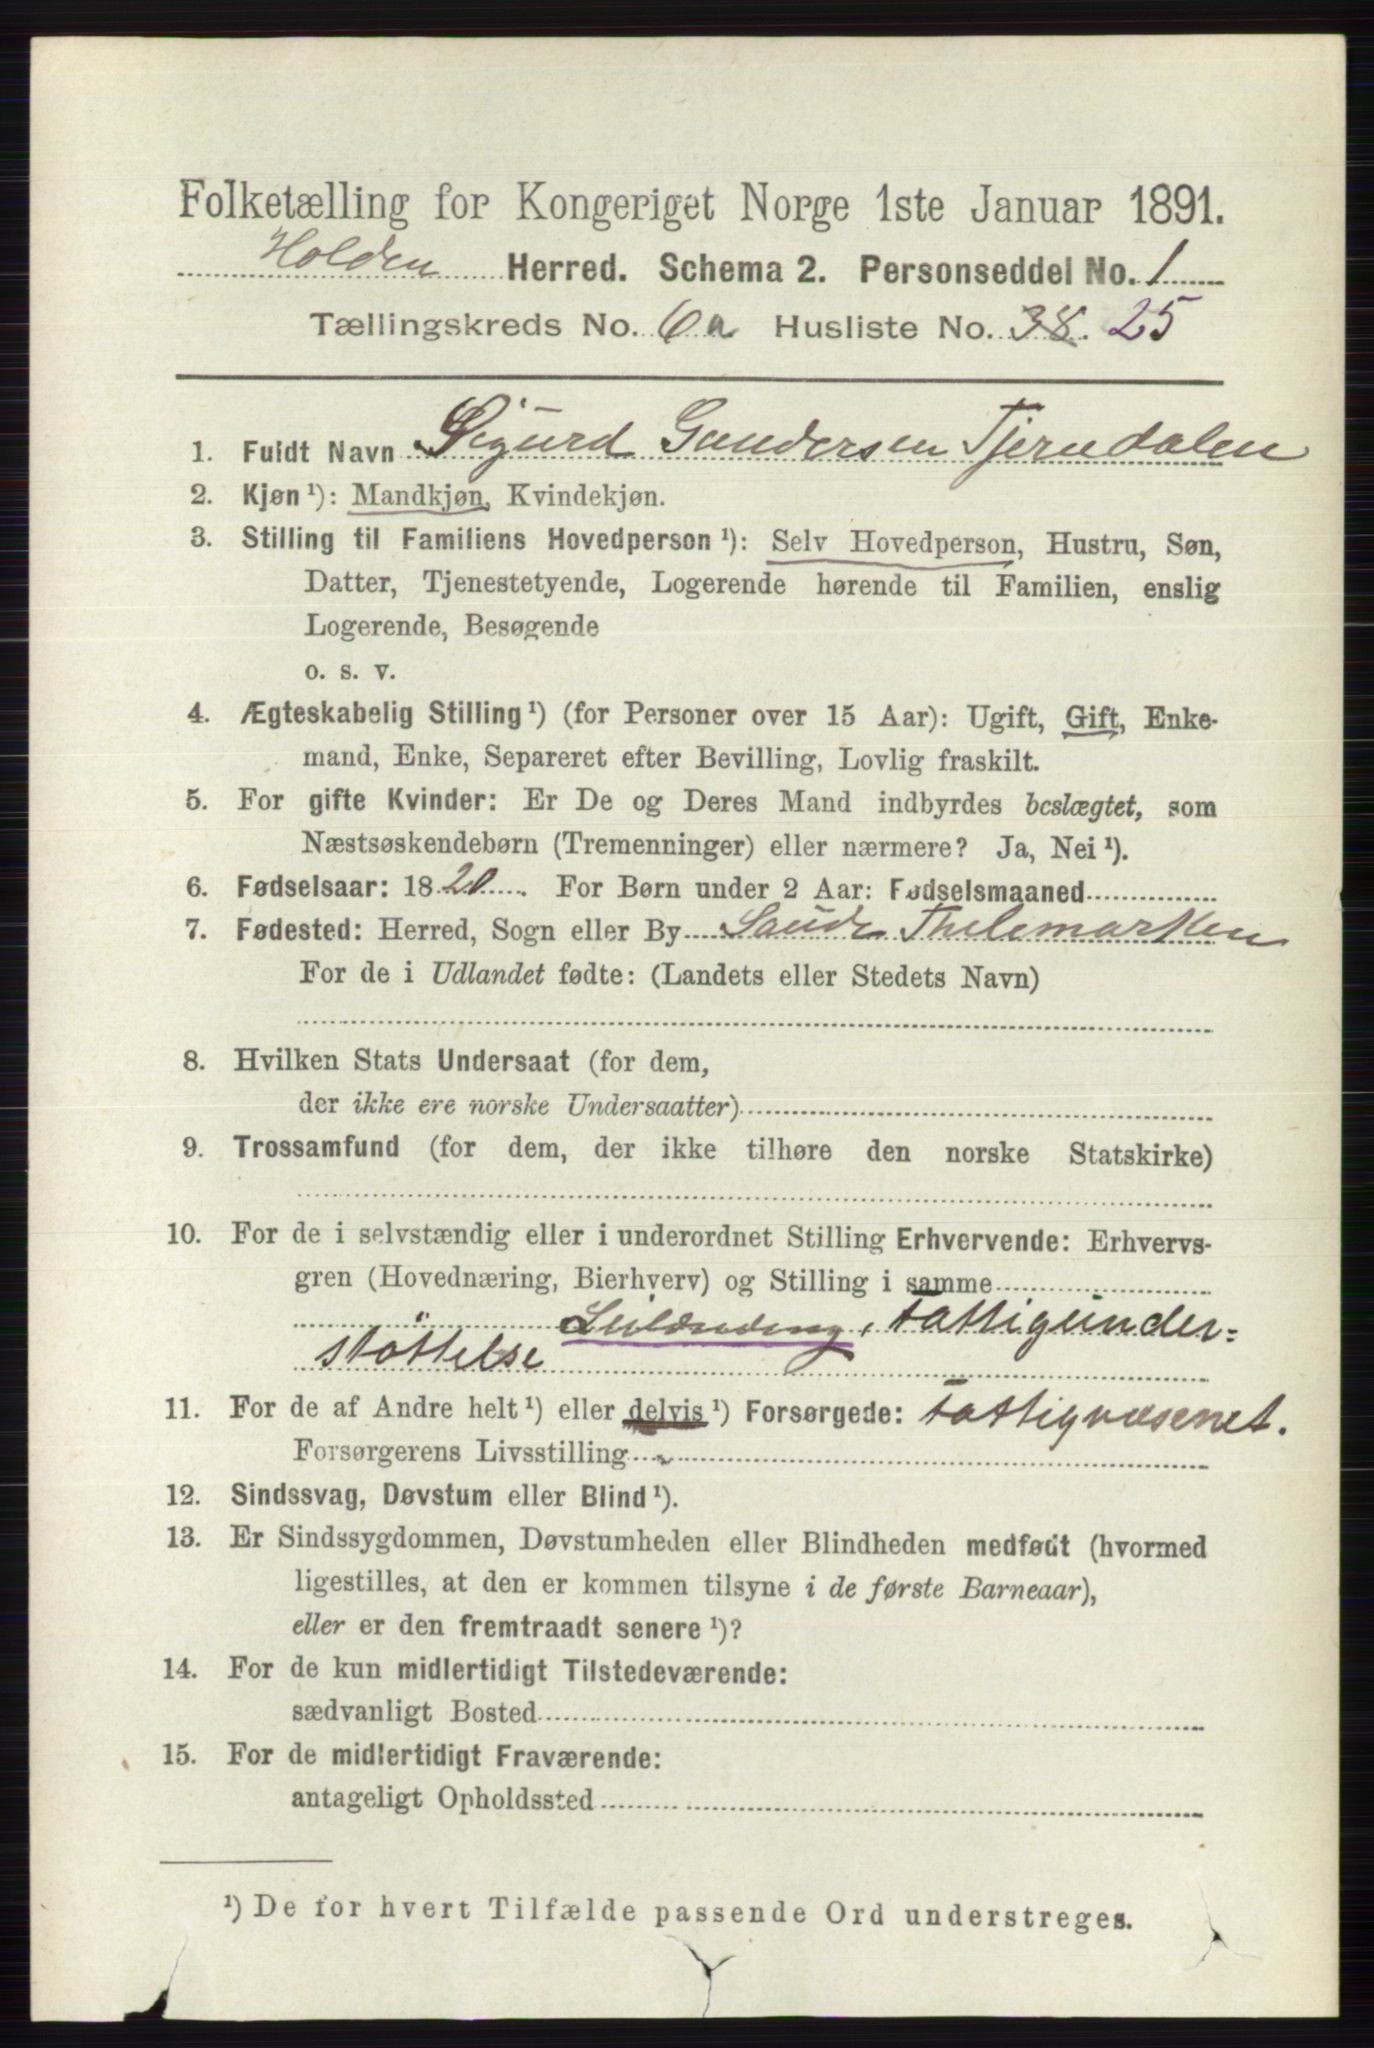 Folketælling for Kongeriget Norge 1ste Januar 1891.
Holden Herred. Schema 2. Personseddel No. 1
Tællingskreds No. 6a Husliste No. 38. 25
1. Fuldt Navn Sigurd Gundersen Tjerndalen
2. Kjøn ¹): Mandkjøn, Kvindekjøn.
3. Stilling til Familiens Hovedperson ¹): Selv Hovedperson, Hustru, Søn,
Datter, Tjenestetyende, Logerende hørende til Familien, enslig
Logerende, Besøgende
o. s. v.
4. Ægteskabelig Stilling ¹) (for Personer over 15 Aar): Ugift, Gift, Enke-
mand, Enke, Separeret efter Bevilling, Lovlig fraskilt.
5. For gifte Kvinder: Er De og Deres Mand indbyrdes beslægtet, som
Næstsøskendebørn (Tremenninger) eller nærmere? Ja, Nei ¹).
6. Fødselsaar: 1820. For Børn under 2 Aar: Fødselsmaaned
7. Fødested: Herred, Sogn eller By Saude Thelemarken
For de i Udlandet fødte: (Landets eller Stedets Navn)
8. Hvilken Stats Undersaat (for dem,
der ikke ere norske Undersaatter)
9. Trossamfund (for dem, der ikke tilhøre den norske Statskirke)
10. For de i selvstændig eller i underordnet Stilling Erhvervende: Erhvervs-
gren (Hovednæring, Bierhverv) og Stilling i samme
Leilænding, Fattigunder=
støttelse
11. For de af Andre helt ¹) eller delvis ¹) Forsørgede: Fattigvæsenet.
Forsørgerens Livsstilling
12. Sindssvag, Døvstum eller Blind ¹).
13. Er Sindssygdommen, Døvstumheden eller Blindheden medfødt (hvormed
ligestilles, at den er kommen tilsyne i de første Barneaar),
eller er den fremtraadt senere ¹)?
14. For de kun midlertidigt Tilstedeværende:
sædvanligt Bosted
15. For de midlertidigt Fraværende:
antageligt Opholdssted
¹) De for hvert Tilfælde passende Ord understreges.